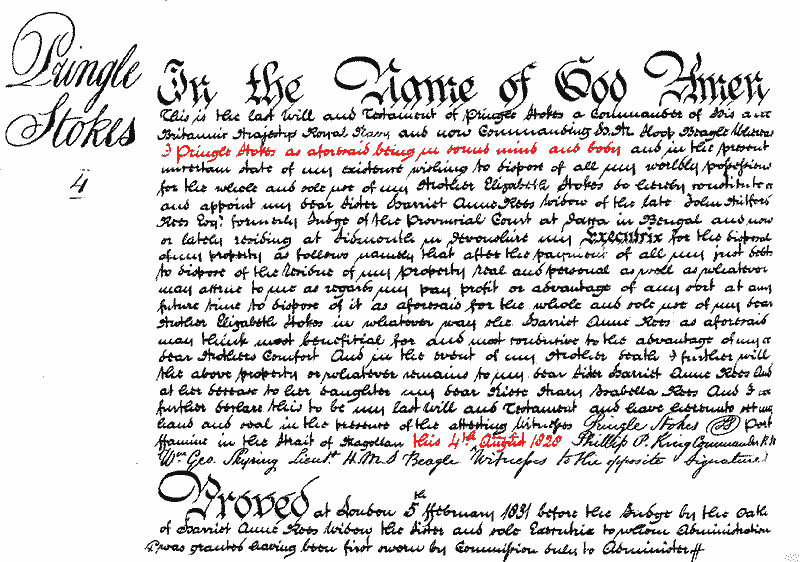 Pringle
Stokes
4
In the Name of God Amen
This is the last Will and Testament of Pringle Stokes a Commander of His
Britannic Majestys Royal Navy and now Commanding H. M. Sloop Beagle
I Pringle Stokes as aforesaid being in sound mind and body and in the present
uncertain state of my existence wishing to dispose of all my worldly possessions
for the whole and sole use of my Mother Elizabeth Stokes do hereby constitute
and appoint my dear Sister Harriet Anne Rees Widow of the late John
Rees Esqr. formerly Judge of the Provincial Court at Dacca in Bengal and now
or lately residing at Sidmouth in Devonshire my Executrix for the disposal
of my property as follows namely that after the payment of all my just debts
to dispose of the residue of my property real and personal as well as whatever
may accrue to me as regards my pay profit or advantage of any sort at any
future time to dispose of it as aforesaid for the whole and sole use of my dear
Mother Elizabeth Stokes in whatever way she Harriet Anne Rees as aforesaid
may think most beneficial for and most conducive to the advantage of my
dear Mothers Comfort And in the event of my Mother death I further will
the above property or whatever remains to my dear Sister Harriet Anne Rees And
at her decease to her daughter my dear Niece Mary Isabella Rees And I
further declare this to be my last Will and Testament and have hereunto set my
hand and seal in the presence of the attesting Witnesses Pringle Stokes Port
ffamine in the Strait of Magellan this 4th August 1828 Phillip P. King Commander R N
Wm Geo. Skyring Lieut H.M.S Beagle Witnesses to the opposite signature.
Proved at London 5th ffebruary 1831 before the Judge by the Oath
of Harriet Anne Rees Widow the Sister and sole Executrix to whom Administration
was granted having been first sworn by Commission duly to Administer